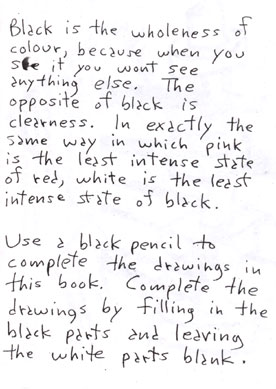 Black is the wholeness of
colour, because when you
see it you wont see
anything else. The
opposite of black is
clearness. In exactly the
same way in which pink
is the least intense state
of red, white is the least
intense state of black.
Use a black pencil to
complete the drawings in
this book. Complete the
drawings by filling in the
black parts and leaving
the white parts blank.